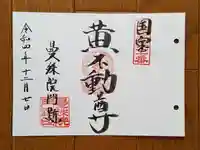 国宝
黄不動尊
曼殊院門跡
令和四年十二月七日